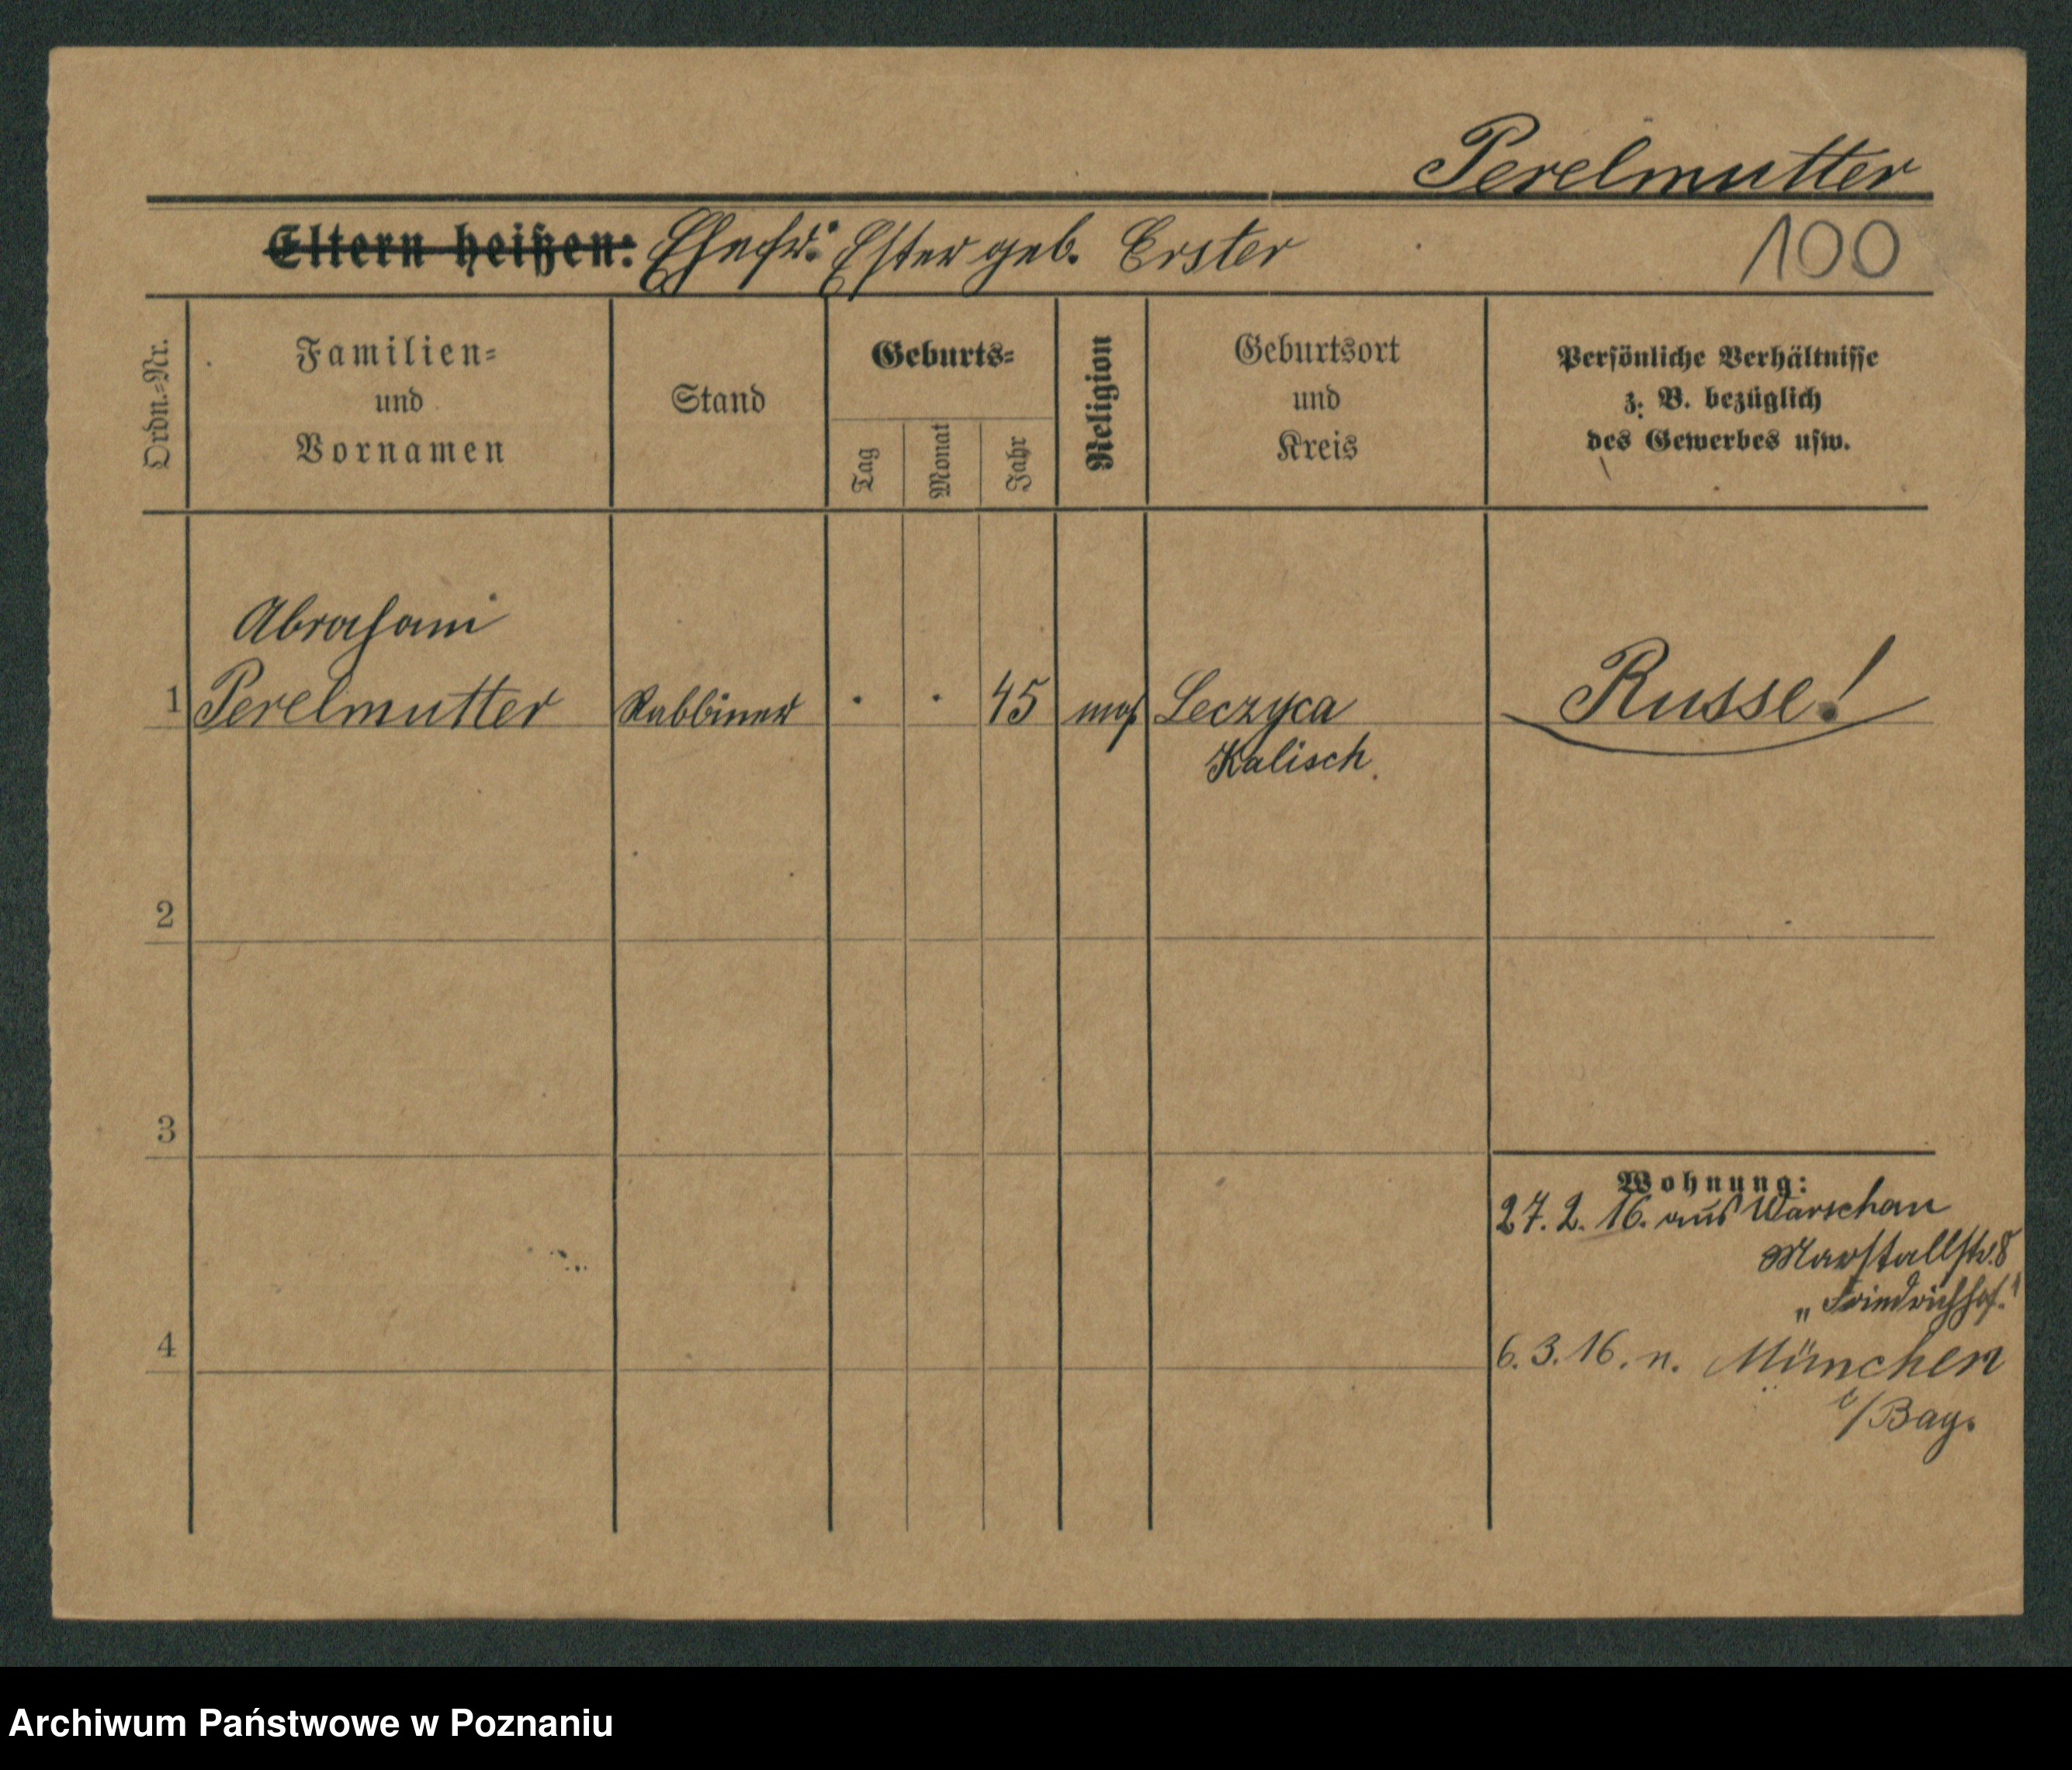 Perelmutter
Eltern heißen: Ehefr: Ester geb. Erster
100
Ordn.-Nr.
Familien-
und
Vornamen
Stand
Geburts-
Tag
Monat
Jahr
Religion
Geburtsort
und
Kreis
Persönliche Verhältnisse
z. B. bezüglich
des Gewerbes usw.
Abraham
1 Perelmutter Rabbiner . . 45 mos Leczyca Russe!
Kalisch
2
3
Wohnung:
27. 2. 16. aus Warschau
Marstallstr. 8
„Friedrichhof."
4
6. 3. 16. n. München
i/Bay.
Archiwum Państwowe w Poznaniu